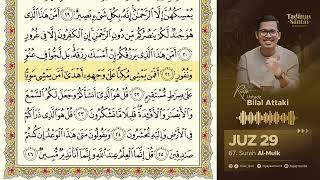 يُمْسِكُهُنَّ إِلَّا الرَّحْمَٰنُ إِنَّهُ بِكُلِّ شَيْءٍ بَصِيرٌ ١٩ أَمَّنْ هَٰذَا الَّذِي
هُوَ جُندٌ لَّكُمْ يَنصُرُكُم مِّن دُونِ الرَّحْمَٰنِ إِنِ الْكَٰفِرُونَ إِلَّا فِي غُرُورٍ
٢٠ أَمَّنْ هَٰذَا الَّذِي يَرْزُقُكُمْ إِنْ أَمْسَكَ رِزْقَهُ بَل لَّجُّوا فِي عُتُوٍّ
وَنُفُورٍ ٢١ أَفَمَن يَمْشِي مُكِبًّا عَلَىٰ وَجْهِهِ أَهْدَىٰ أَمَّن يَمْشِي سَوِيًّا
عَلَىٰ صِرَٰطٍ مُّسْتَقِيمٍ ٢٢ قُلْ هُوَ الَّذِي أَنشَأَكُمْ وَجَعَلَ لَكُمُ السَّمْعَ
وَالْأَبْصَٰرَ وَالْأَفْئِدَةَ قَلِيلًا مَّا تَشْكُرُونَ ٢٣ قُلْ هُوَ الَّذِي ذَرَأَكُمْ
فِي الْأَرْضِ وَإِلَيْهِ تُحْشَرُونَ ٢٤ وَيَقُولُونَ مَتَىٰ هَٰذَا الْوَعْدُ إِن كُنتُمْ
صَٰدِقِينَ ٢٥ قُلْ إِنَّمَا الْعِلْمُ عِندَ اللَّهِ وَإِنَّمَا أَنَا نَذِيرٌ مُّبِينٌ ٢٦
Tadarus
Santai
Ustadz
Bilal Attaki
JUZ 29
67. Surah Al-Mulk